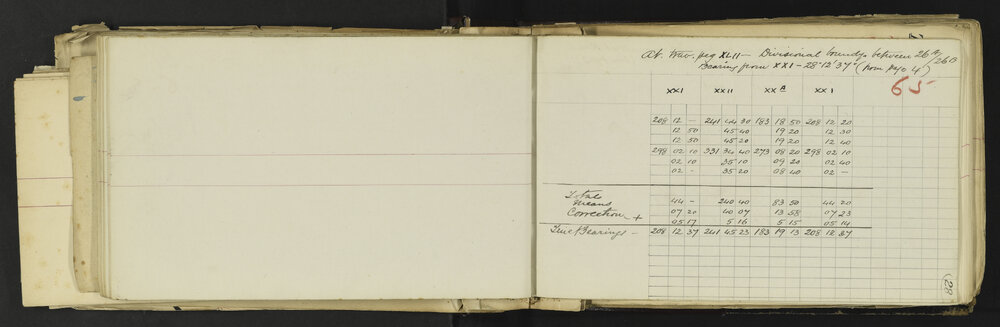 At trav. peg XLII — Divisional boundy. between 26A/26B
Bearing from XXI – 28° 12' 37" (from page 4)
65
XXI XXII XXA XXI
208 12 – 241 44 30 183 18 50 208 12 20
12 50 45 40 19 20 12 30
12 50 45 20 19 20 12 40
298 02 10 331 34 40 273 08 20 298 02 10
02 10 35 10 09 20 02 40
02 – 35 20 08 40 02 –
Totals 44 – 240 40 83 50 44 20
Means 07 20 40 07 13 58 07 23
Correction + 05 17 5 16 5 15 05 14
True Bearings – 208 12 37 241 45 23 183 19 13 208 12 37